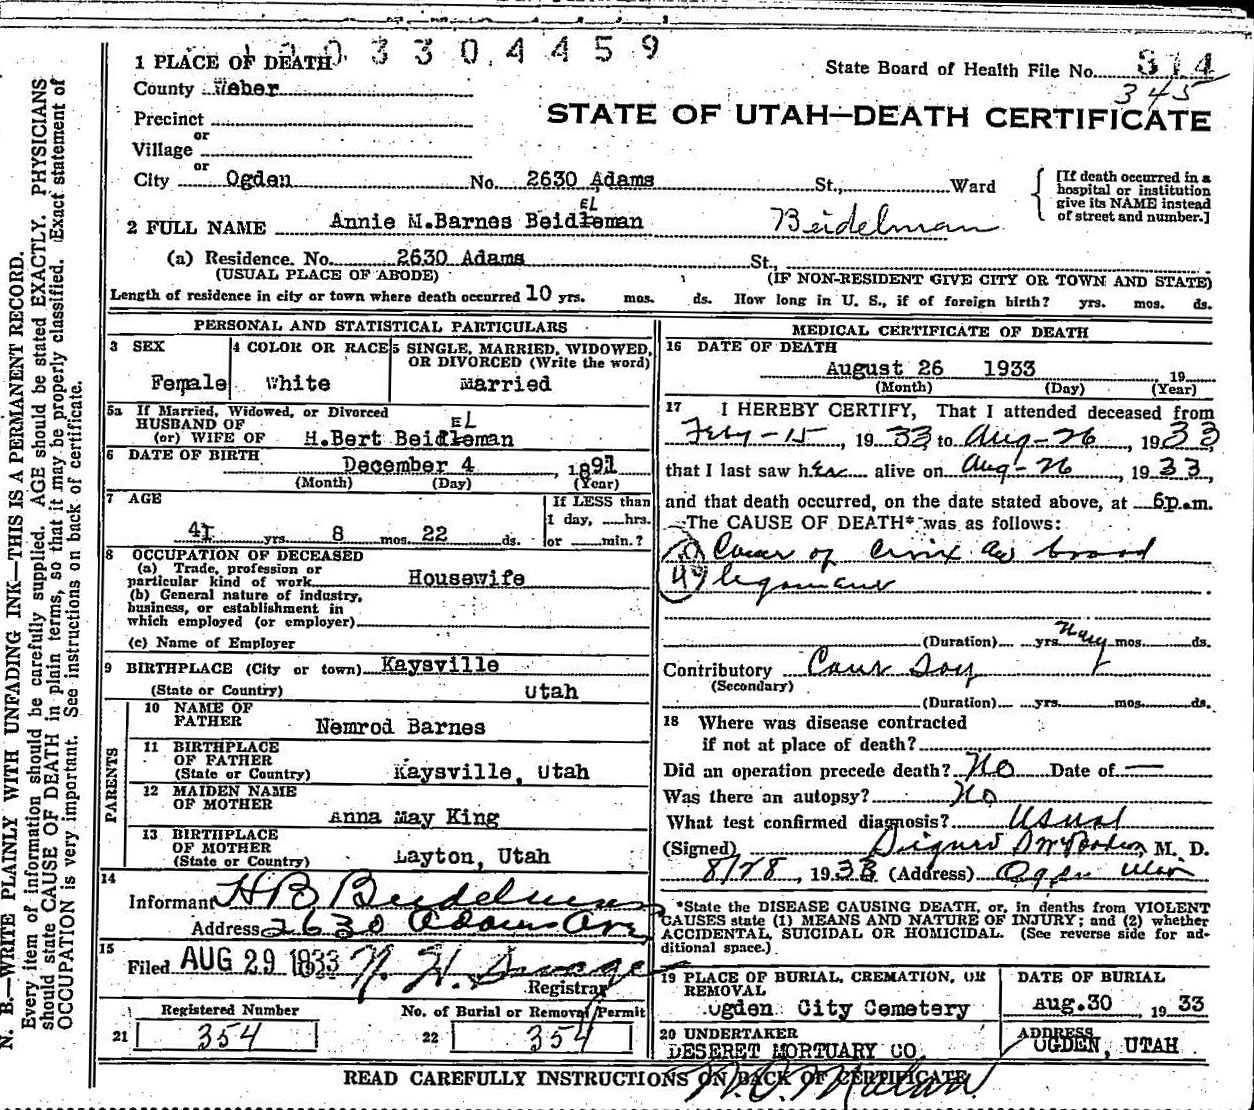 3 3 0 4 4 5 9
1 PLACE OF DEATH
State Board of Health File No. 314
345
County Weber
STATE OF UTAH—DEATH CERTIFICATE
Precinct
or
Village
or
City Ogden No. 2630 Adams St., Ward
[If death occurred in a hospital or institution give its NAME instead of street and number.]
EL
2 FULL NAME Annie M.Barnes Beidleman Beidelman
(a) Residence. No. 2630 Adams St.,
(USUAL PLACE OF ABODE) (IF NON-RESIDENT GIVE CITY OR TOWN AND STATE)
Length of residence in city or town where death occurred 10 yrs. mos. ds. How long in U. S., if of foreign birth? yrs. mos. ds.
PERSONAL AND STATISTICAL PARTICULARS
3 SEX
Female
4 COLOR OR RACE
White
5 SINGLE, MARRIED, WIDOWED,
OR DIVORCED (Write the word)
Married
5a If Married, Widowed, or Divorced
HUSBAND OF EL
(or) WIFE OF H.Bert Beidleman
6 DATE OF BIRTH
December 4, 1891
(Month) (Day) (Year)
7 AGE
41 yrs. 8 mos. 22 ds.
If LESS than
1 day, hrs.
or min.?
8 OCCUPATION OF DECEASED
(a) Trade, profession or
particular kind of work Housewife
(b) General nature of industry,
business, or establishment in
which employed (or employer)
(c) Name of Employer
9 BIRTHPLACE (City or town) Kaysville
(State or Country) Utah
PARENTS
10 NAME OF
FATHER Nemrod Barnes
11 BIRTHPLACE
OF FATHER
(State or Country) Kaysville, Utah
12 MAIDEN NAME
OF MOTHER
Anna May King
13 BIRTHPLACE
OF MOTHER
(State or Country) Layton, Utah
14
Informant H B Beidelman
Address 2630 Adams Ave
15
Filed AUG 29 1933 N. H. Savage
Registrar
Registered Number
21 354
No. of Burial or Removal Permit
22 354
MEDICAL CERTIFICATE OF DEATH
16 DATE OF DEATH
August 26 1933 19
(Month) (Day) (Year)
17 I HEREBY CERTIFY, That I attended deceased from
Feby-15, 1933 to Aug-26, 1933
that I last saw her alive on Aug-26, 1933,
and that death occurred, on the date stated above, at 6p.m.
The CAUSE OF DEATH* was as follows:
of broad
(Duration) yrs. Many mos. ds.
Contributory
(Secondary)
(Duration) yrs. mos. ds.
18 Where was disease contracted
if not at place of death?
Did an operation precede death? No Date of —
Was there an autopsy? No
What test confirmed diagnosis? Usual
(Signed) Signed M. D.
8/28, 1933 (Address) Ogden Utah
*State the DISEASE CAUSING DEATH, or, in deaths from VIOLENT
CAUSES state (1) MEANS AND NATURE OF INJURY; and (2) whether
ACCIDENTAL, SUICIDAL OR HOMICIDAL. (See reverse side for ad-
ditional space.)
19 PLACE OF BURIAL, CREMATION, OR
REMOVAL
Ogden City Cemetery
DATE OF BURIAL
Aug.30 1933
20 UNDERTAKER
DESERET MORTUARY CO.
ADDRESS
OGDEN, UTAH
READ CAREFULLY INSTRUCTIONS ON BACK OF CERTIFICATE
N. B.—WRITE PLAINLY WITH UNFADING INK—THIS IS A PERMANENT RECORD.
Every item of information should be carefully supplied. AGE should be stated EXACTLY. PHYSICIANS
should state CAUSE OF DEATH in plain terms, so that it may be properly classified. Exact statement of
OCCUPATION is very important. See instructions on back of certificate.